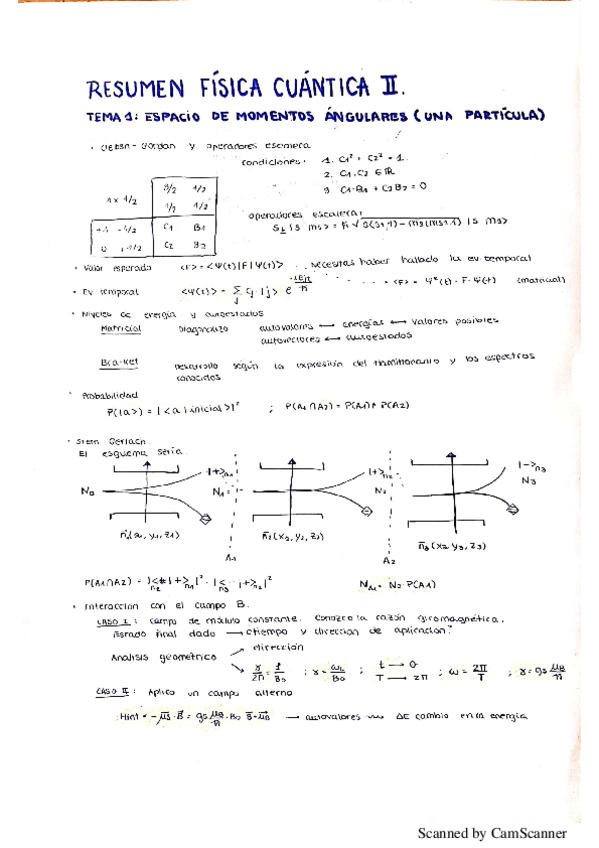 RESUMEN FÍSICA CUÁNTICA II.
TEMA 1: ESPACIO DE MOMENTOS ÁNGULARES (UNA PARTÍCULA)
· Clebsh-Gordan y operadores escalera
condiciones: 1. C1² + C2² = 1.
2. C1, C2 ∈ ℝ
3. C1·B1 + C2 B2 = 0
1 x 1/2
3/2 1/2
1/2 1/2
+1 -1/2 C1 B1
0 +1/2 C2 B2
operadores escalera:
S± |s ms> = ħ √S(S+1) - ms(ms±1) |s ms>
· Valor esperado <F> = <Ψ(t)|F|Ψ(t)> Necesitas haber hallado la ev. temporal
· Ev. temporal <F> = Ψ*(t)·F·Ψ(t) (matricial)
· Niveles de energía y autoestados
Matricial Diagonalizo autovalores ⟷ energías ⟷ valores posibles
autovectores ⟷ autoestados
Bra-ket Desarrollo según la expresión del Hamiltoniano y los espectros
conocidos
· Probabilidad
P(|a>) = |<a|inicial>|² ; P(A1∩A2) = P(A1)· P(A2)
· Stern Gerlach.
El esquema sería.
N0 |+>n1 N1 |+>n2 N2 |->n3
N3
n1(x1, y1, z1) n2(x2, y2, z2) n3(x3, y3, z3)
A1 A2
P(A1∩A2) = NA1 = N0·P(A1)
· Interaccion con el campo B.
CASO I: campo de módulo constante. Conozco la razón giromagnética.
Estado final dado → ¿tiempo y direccion de aplicación?
Analisis geométrico → dirección
γ/2π = f/B0 ; γ = ωL/B0 ; t → θ T → 2π ; ω = 2π/T ; γ = gs μB/ħ
CASO II: Aplico un campo alterno
Hint = -μs·B = gs μB/ħ · B0 → autovalores ΔE cambio en la energía
Scanned by CamScanner